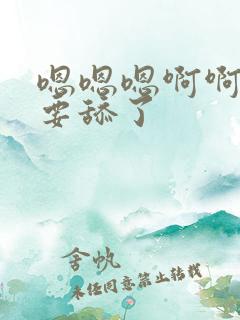 嗯嗯嗯啊啊
要舔了
舍帆
未经同意禁止转载